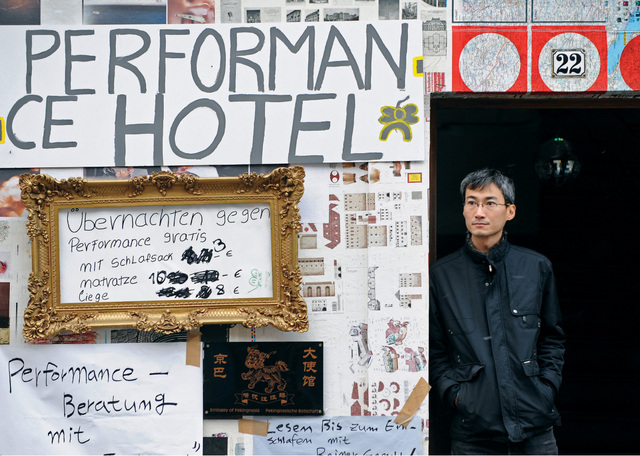 PERFORMAN
CE HOTEL
22
Übernachten gegen
Performance gratis
mit Schlafsack 3 - €
matratze 10 - €
Liege 8 €
京巴 大使馆
Embassy of Pekingnesia Pekingnesische Botschaft
Performance -
Beratung
mit
Lesen Bis zum Ein-
schlafen mit
Rainer